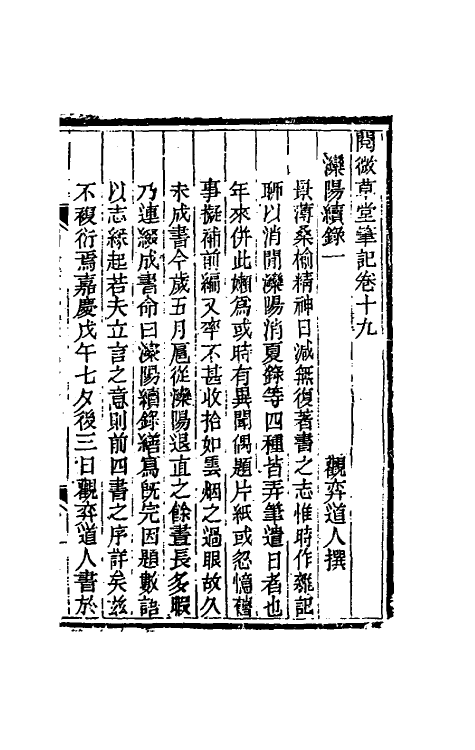 閱微草堂筆記卷十九
灤陽續錄一　觀弈道人撰
景薄桑榆精神日減無復著書之志惟時作雜記
聊以消閒灤陽消夏錄等四種皆弄筆遣日者也
年來併此懶爲或時有異聞偶題片紙或忽憶舊
事擬補前編又率不甚收拾如雲烟之過眼故久
未成書今歲五月扈從灤陽退直之餘晝長多暇
乃連綴成書命曰灤陽續錄繕寫既完因題數語
以志緣起若夫立言之意則前四書之序詳矣茲
不複衍焉嘉慶戊午七夕後三日觀弈道人書於